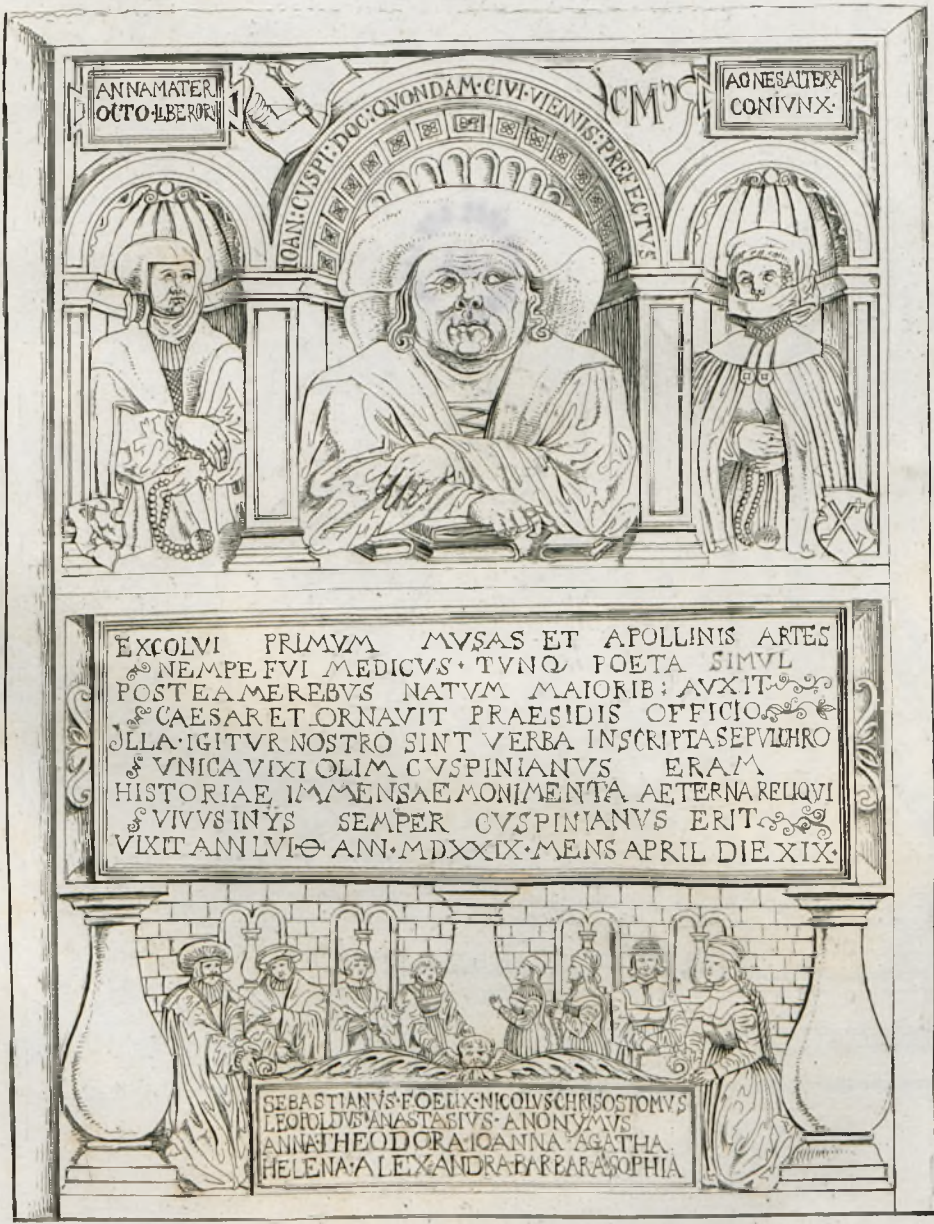 ANNAMATER
OCTO·LIBERORV
IOAN:CVSPI:DOC:QVONDAM·CIVI·VIENNIS:PREFECTVS
AGNESALTERA
CONIVNX·
EXCOLVI PRIMVM MVSAS ET APOLLINIS ARTES
NEMPE FVI MEDICVS· TVNQ POETA SIMVL
POSTEA ME REBVS NATVM MAIORIB: AVXIT
CAESAR ET ORNAVIT PRAESIDIS OFFICIO
ILLA·IGITVR NOSTRO SINT VERBA INSCRIPTA SEPVLCHRO
VNICA VIXI OLIM CVSPINIANVS ERAM
HISTORIAE IMMENSAE MONIMENTA AETERNA RELIQVI
VIVVS IN YS SEMPER CVSPINIANVS ERIT
VIXIT ANN LVI O ANN·MDXXIX·MENS APRIL DIE XIX·
SEBASTIANVS·FOELIX·NICOLVS CHRISOSTOMVS
LEOPOLDVS·ANASTASIVS·ANONYMVS
ANNA·THEODORA·IOANNA·AGATHA
HELENA·ALEXANDRA·BARBARA·SOPHIA